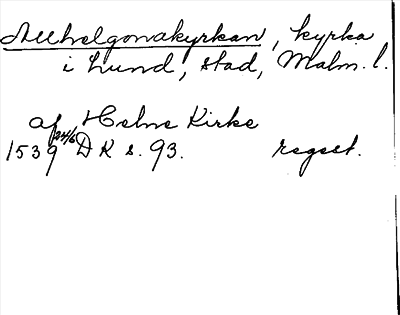 Allhelgonakyrkan, kyrka
i Lund, stad, Malm. l.
af Helne Kirke
1539 24/6 D K s. 93. regest.